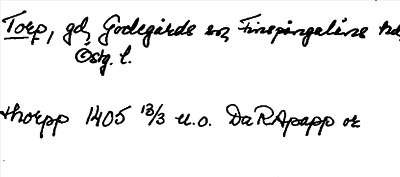 Torp, gd, Godegårds sn, Finspångaläns hd,
Östg. l.
thorpp 1405 13/3 u.o. DaRApapp or